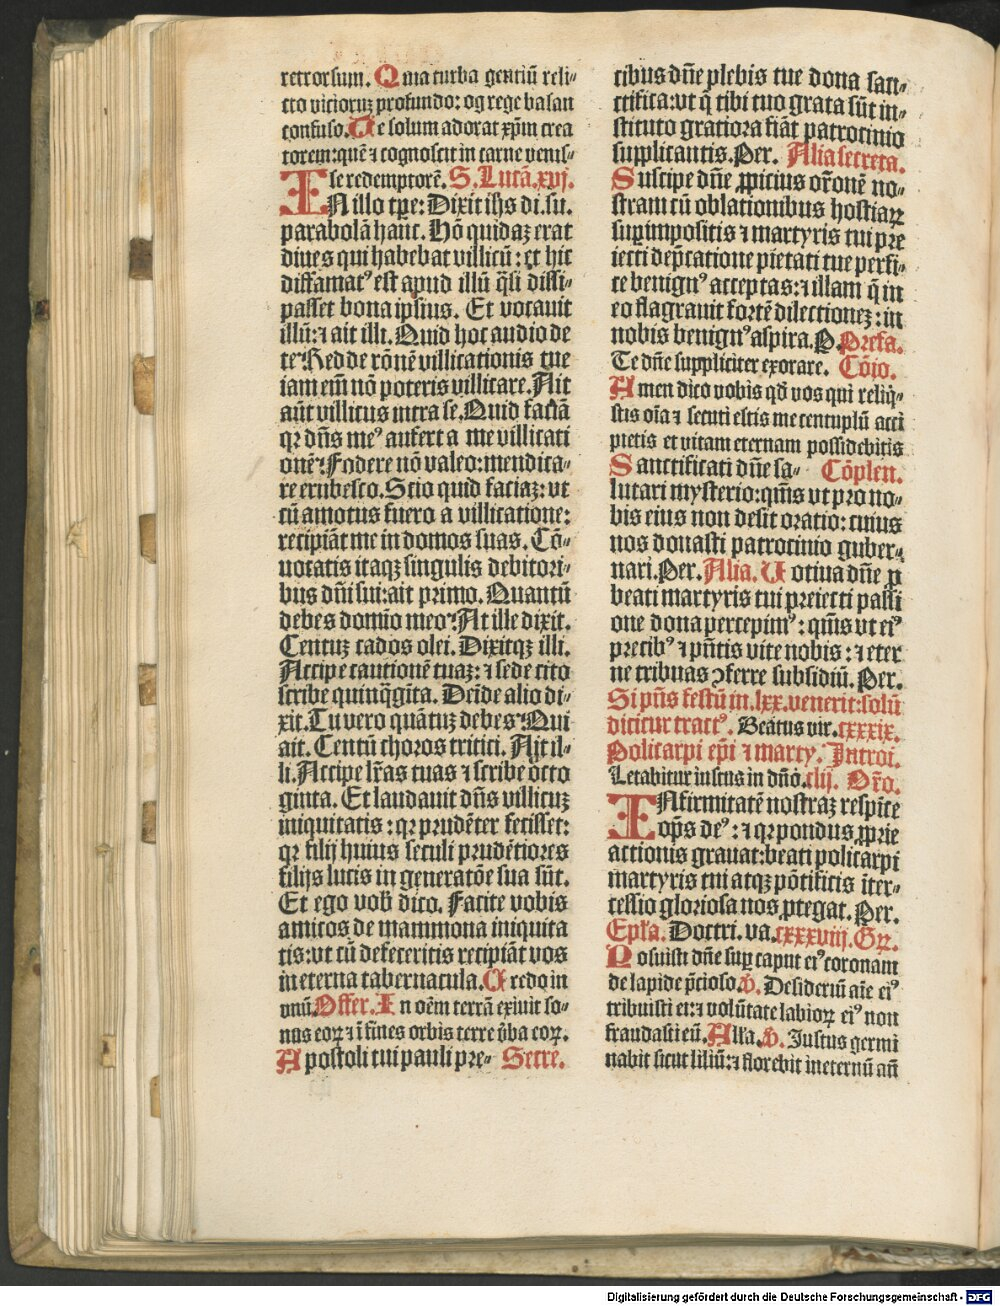 retrorsum. Quia turba gentiū reli-
cto vicioruꝫ profundo: og rege basan
confuso. Te solum adorat xp̄m crea
torem: quē ⁊ cognoscit in carne venis-
se redemptorē. S. Lucā. xvj.
IN illo tp̄e: Dixit ih̄s di. su.
parabolā hanc. Hō quidaꝫ erat
diues qui habebat villicū: et hic
diffamatꝰ est apud illū q̄si dissi-
passet bona ipsius. Et vocauit
illū: ⁊ ait illi. Quid hoc audio de
te? Redde rōnē villicationis tue
iam em̄ nō poteris villicare. Ait
aūt villicus intra se. Quid faciā
qꝛ dn̄s meꝰ aufert a me villicati
onē? Fodere nō valeo: mendica-
re erubesco. Scio quid faciaꝫ: vt
cū amotus fuero a villicatione:
recipiāt me in domos suas. Cō-
uocatis itaqꝫ singulis debitori-
bus dn̄i sui: ait primo. Quantū
debes domino meo? At ille dixit.
Centuꝫ cados olei. Dixitqꝫ illi.
Accipe cautionē tuaꝫ: ⁊ sede cito
scribe quinq̄gīta. Deīde alio di-
xit. Tu vero quātuꝫ debes? Qui
ait. Centū choros tritici. Ait il-
li. Accipe lr̄as tuas ⁊ scribe octo
ginta. Et laudauit dn̄s villicuꝫ
iniquitatis: qꝛ prudēter fecisset:
qꝛ filij huius seculi prudētiores
filijs lucis in generatōe sua sūt.
Et ego vob̄ dico. Facite vobis
amicos de mammona iniquita
tis: vt cū defeceritis recipiāt vos
in eterna tabernacula. Credo in
vnū. Offer. In oēm terrā exiuit so-
nus eoꝝ ⁊ ī fines orbis terre v̄ba eoꝝ.
Apostoli tui pauli pre- Secre.
cibus dn̄e plebis tue dona san-
ctifica: vt q̄ tibi tuo grata sūt in-
stituto gratiora fiāt patrocinio
supplicantis. Per. Alia secreta.
Suscipe dn̄e ꝓpicius or̄onē no-
stram cū oblationibus hostiaꝝ
suꝑimpositis ⁊ martyris tui pre
iecti dep̄catione pietati tue perfi-
ce benignꝰ acceptas: ⁊ illam q̄ in
eo flagrauit fortē dilectioneꝫ: in
nobis benignꝰ aspira. P. Prefa.
Te dn̄e suppliciter exorare. Cōio.
Amen dico vobis qd̄ vos qui reliq̄-
stis oīa ⁊ secuti estis me centuplū acci
pietis et vitam eternam possidebitis
Sanctificati dn̄e sa- Cōplen.
lutari mysterio: qm̄s vt pro no-
bis eius non desit oratio: cuius
nos donasti patrocinio guber-
nari. Per. Alia. Votiua dn̄e ꝓ
beati martyris tui preiecti passi
one dona percepimꝰ: qm̄s vt eiꝰ
precibꝰ ⁊ pn̄tis vite nobis: ⁊ eter
ne tribuas ꝯferre subsidiū. Per.
Si pn̄s festū in. lxx. venerit: solū
dicitur tractꝰ. Beatus vir. cxxxix.
Policarpi ep̄i ⁊ marty. Introi.
Letabitur iustus in dn̄o. clij. Or̄o.
INfirmitatē nostraꝫ respice
op̄s deꝰ: ⁊ qꝛ pondus ꝓprie
actionis grauat: beati policarpi
martyris tui atqꝫ pōtificis īter-
cessio gloriosa nos ꝓtegat. Per.
Epl̄a. Doctri. va. cxxxviij. Gꝛ.
Posuisti dn̄e suꝑ caput eiꝰ coronam
de lapide p̄cioso. ꝟ. Desideriū aīe eiꝰ
tribuisti ei: ⁊ volūtate labioꝝ eiꝰ non
fraudasti eū. Alla. ꝟ. Iustus germi
nabit sicut liliū: ⁊ florebit in eternū an̄
Digitalisierung gefördert durch die Deutsche Forschungsgemeinschaft - DFG